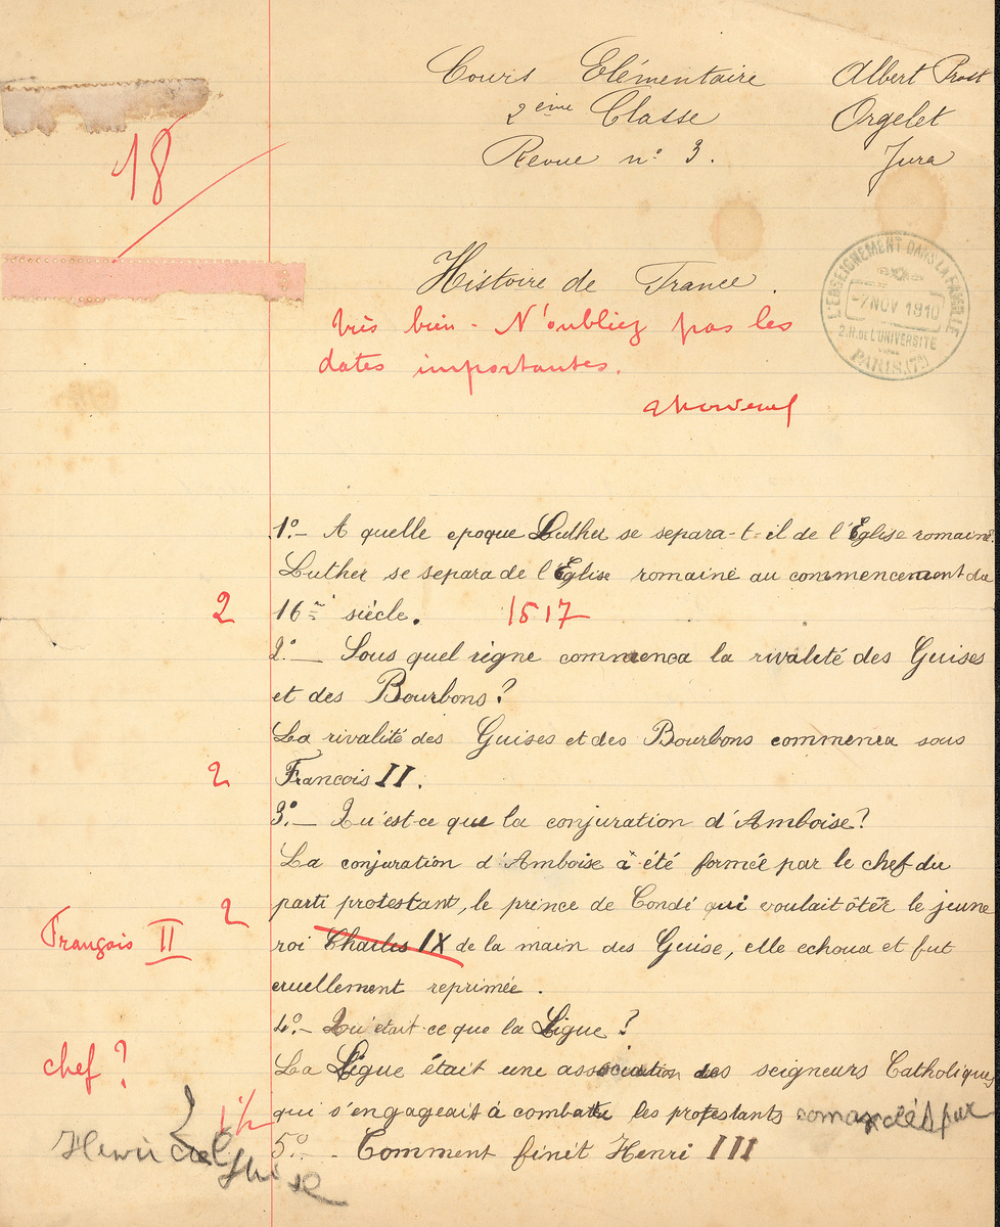 Cours Elémentaire
Albert Prost
2ème Classe
Orgelet
Revue n° 3.
Jura
18
Histoire de France.
L'ENSEIGNEMENT DANS LA FAMILLE
-7 NOV 1910
2.R. DE L'UNIVERSITÉ
PARIS (7e)
Très bien - N'oubliez pas les
dates importantes.
1° - A quelle epoque Luther se separa-t-il de l'Eglise romaine.
Luther se separa de l'Eglise romaine au commencement du
2
16me siècle.
1517
2° - Sous quel règne commenca la rivalité des Guises
et des Bourbons?
La rivalité des Guises et des Bourbons commenca sous
2
Francois II.
3° - Qu'est-ce que la conjuration d'Amboise?
La conjuration d'Amboise a été formée par le chef du
2
parti protestant, le prince de Condé qui voulait ôter le jeune
François II
roi Charles IX de la main des Guise, elle echoua et fut
cruellement reprimée.
4° - Qu'était-ce que la Ligue?
chef?
La Ligue était une association des seigneurs Catholiques
1 1/2
qui s'engageait à combattre les protestants comandés par
Henri de Guise
5° - Comment finit Henri III